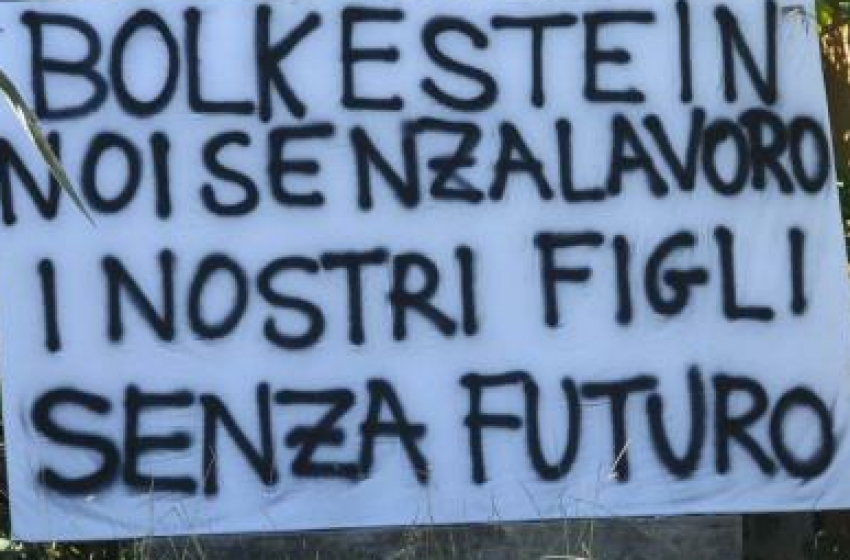 BOLKESTEIN
NOI SENZA LAVORO
I NOSTRI FIGLI
SENZA FUTURO